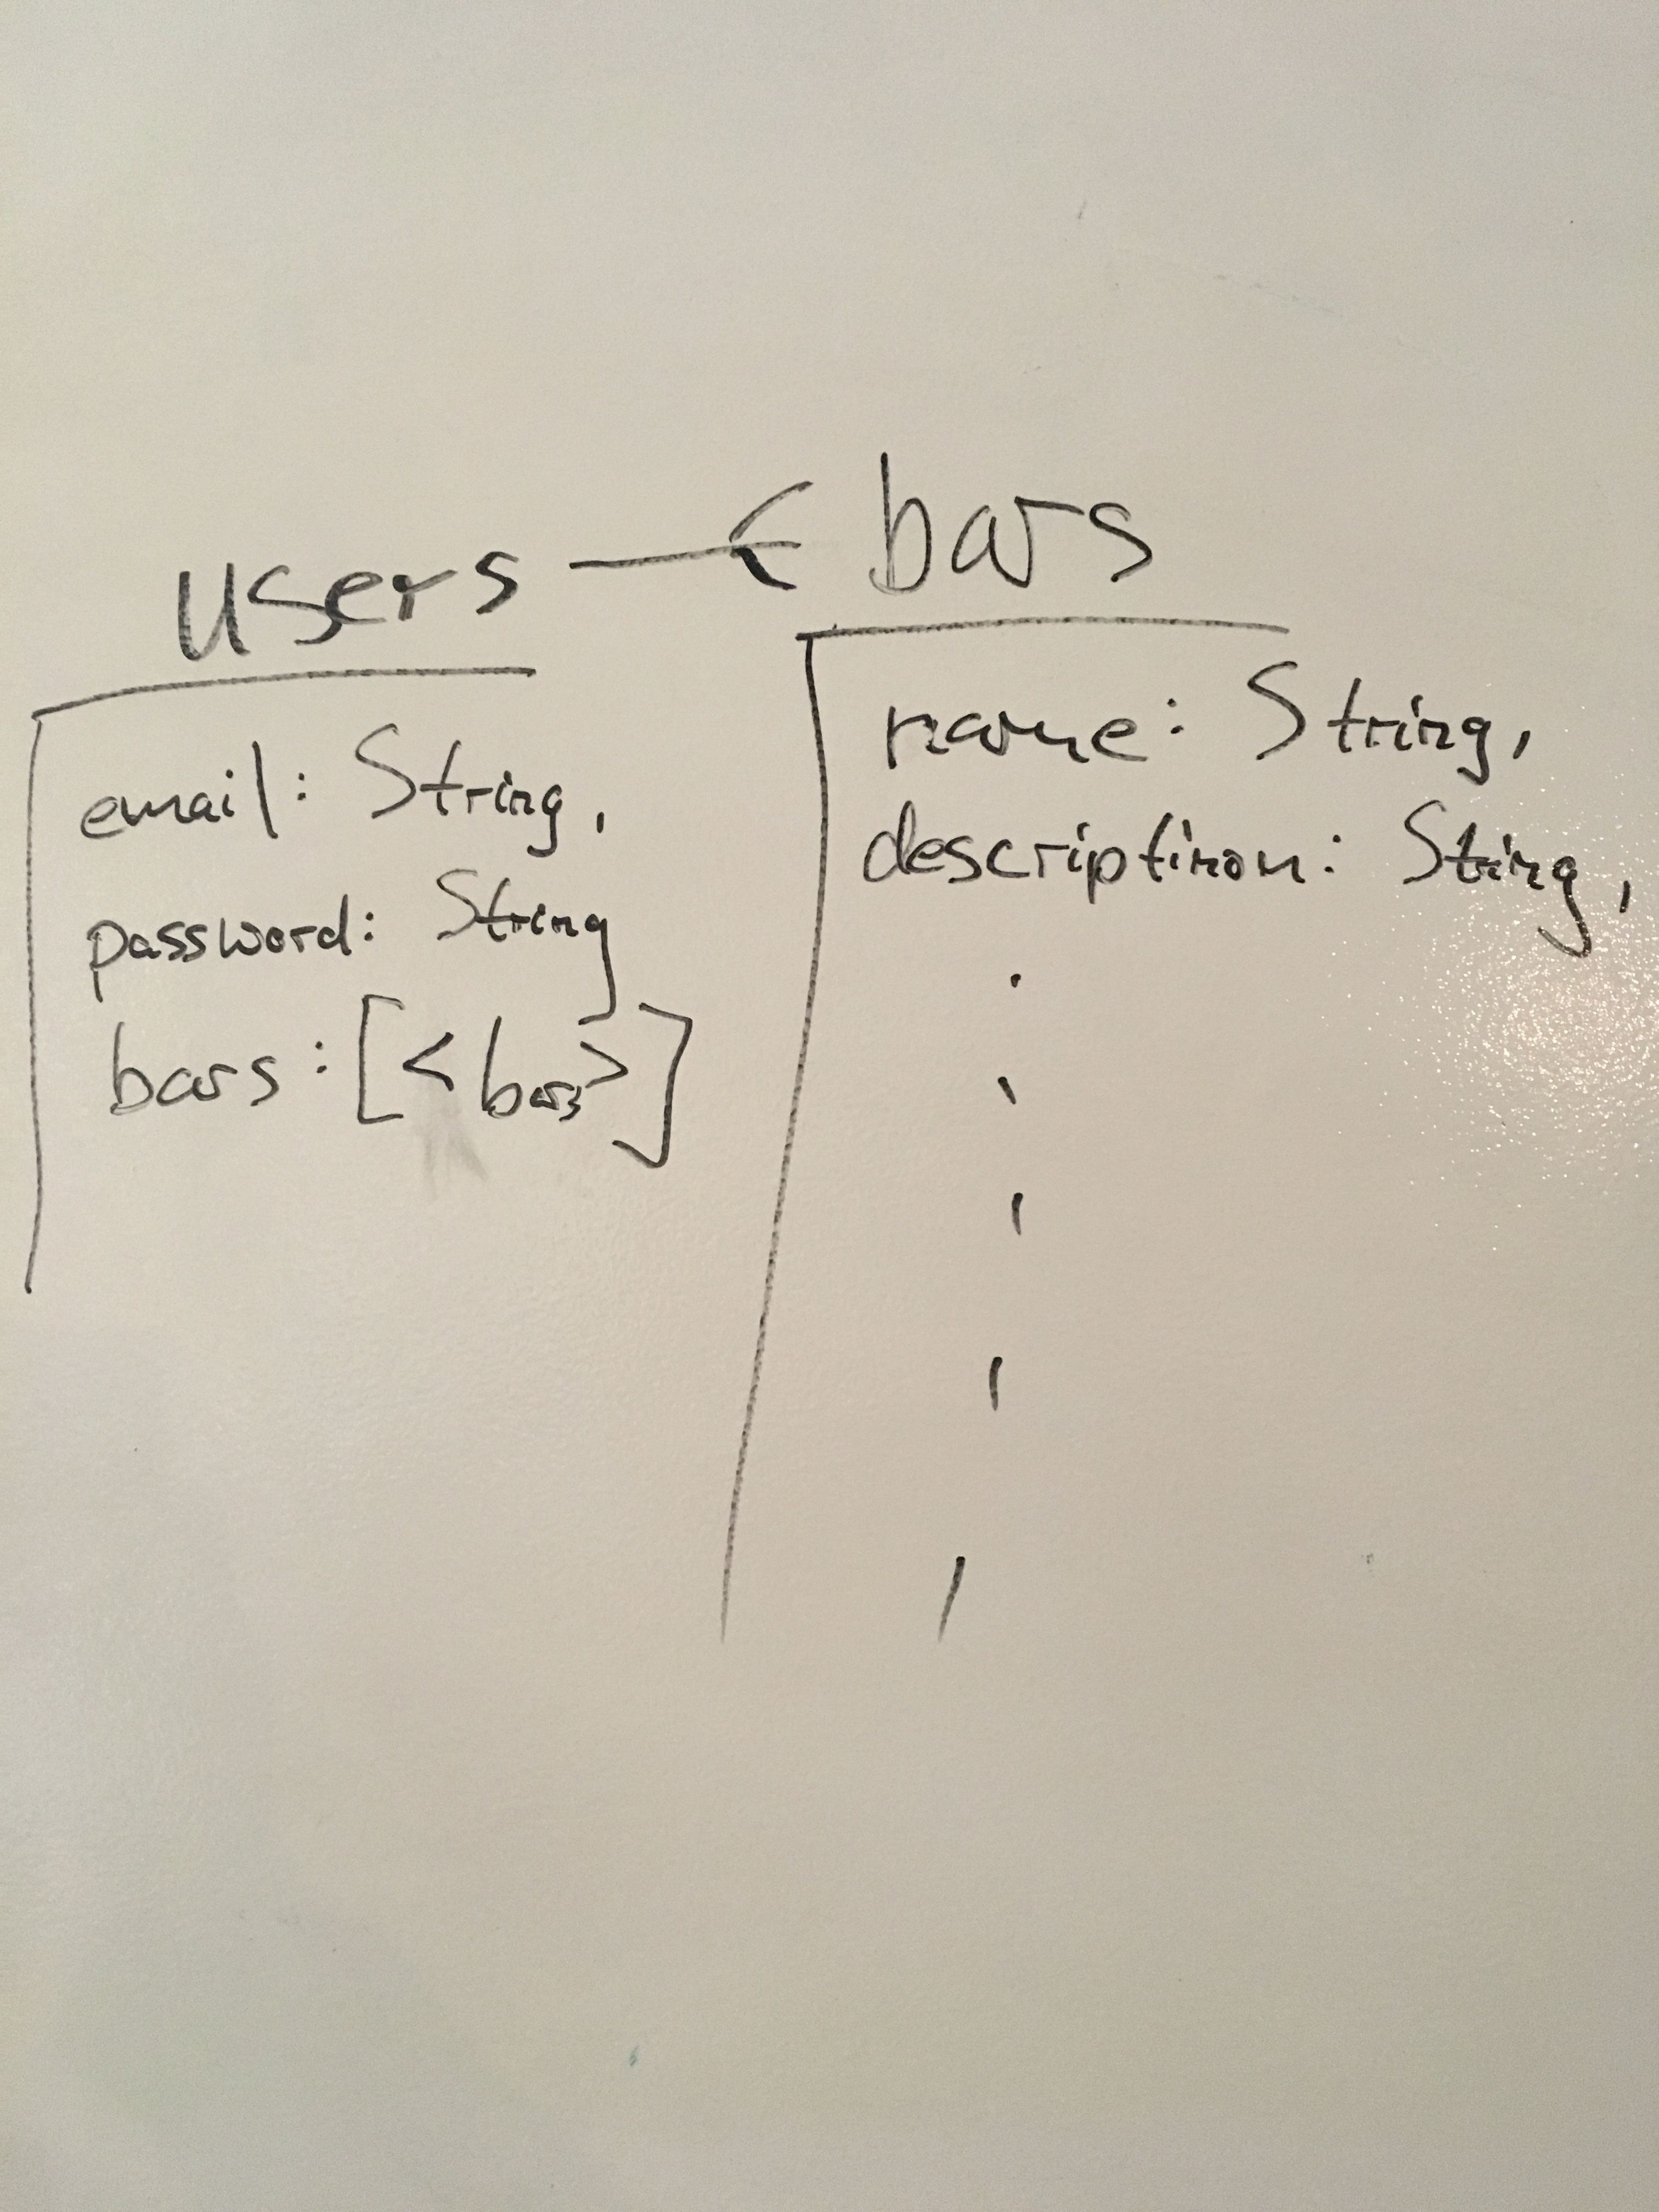 users bars
email: String,
password: String
bars: [<bars>]
name: String,
description: String,
.
.
.
.
.